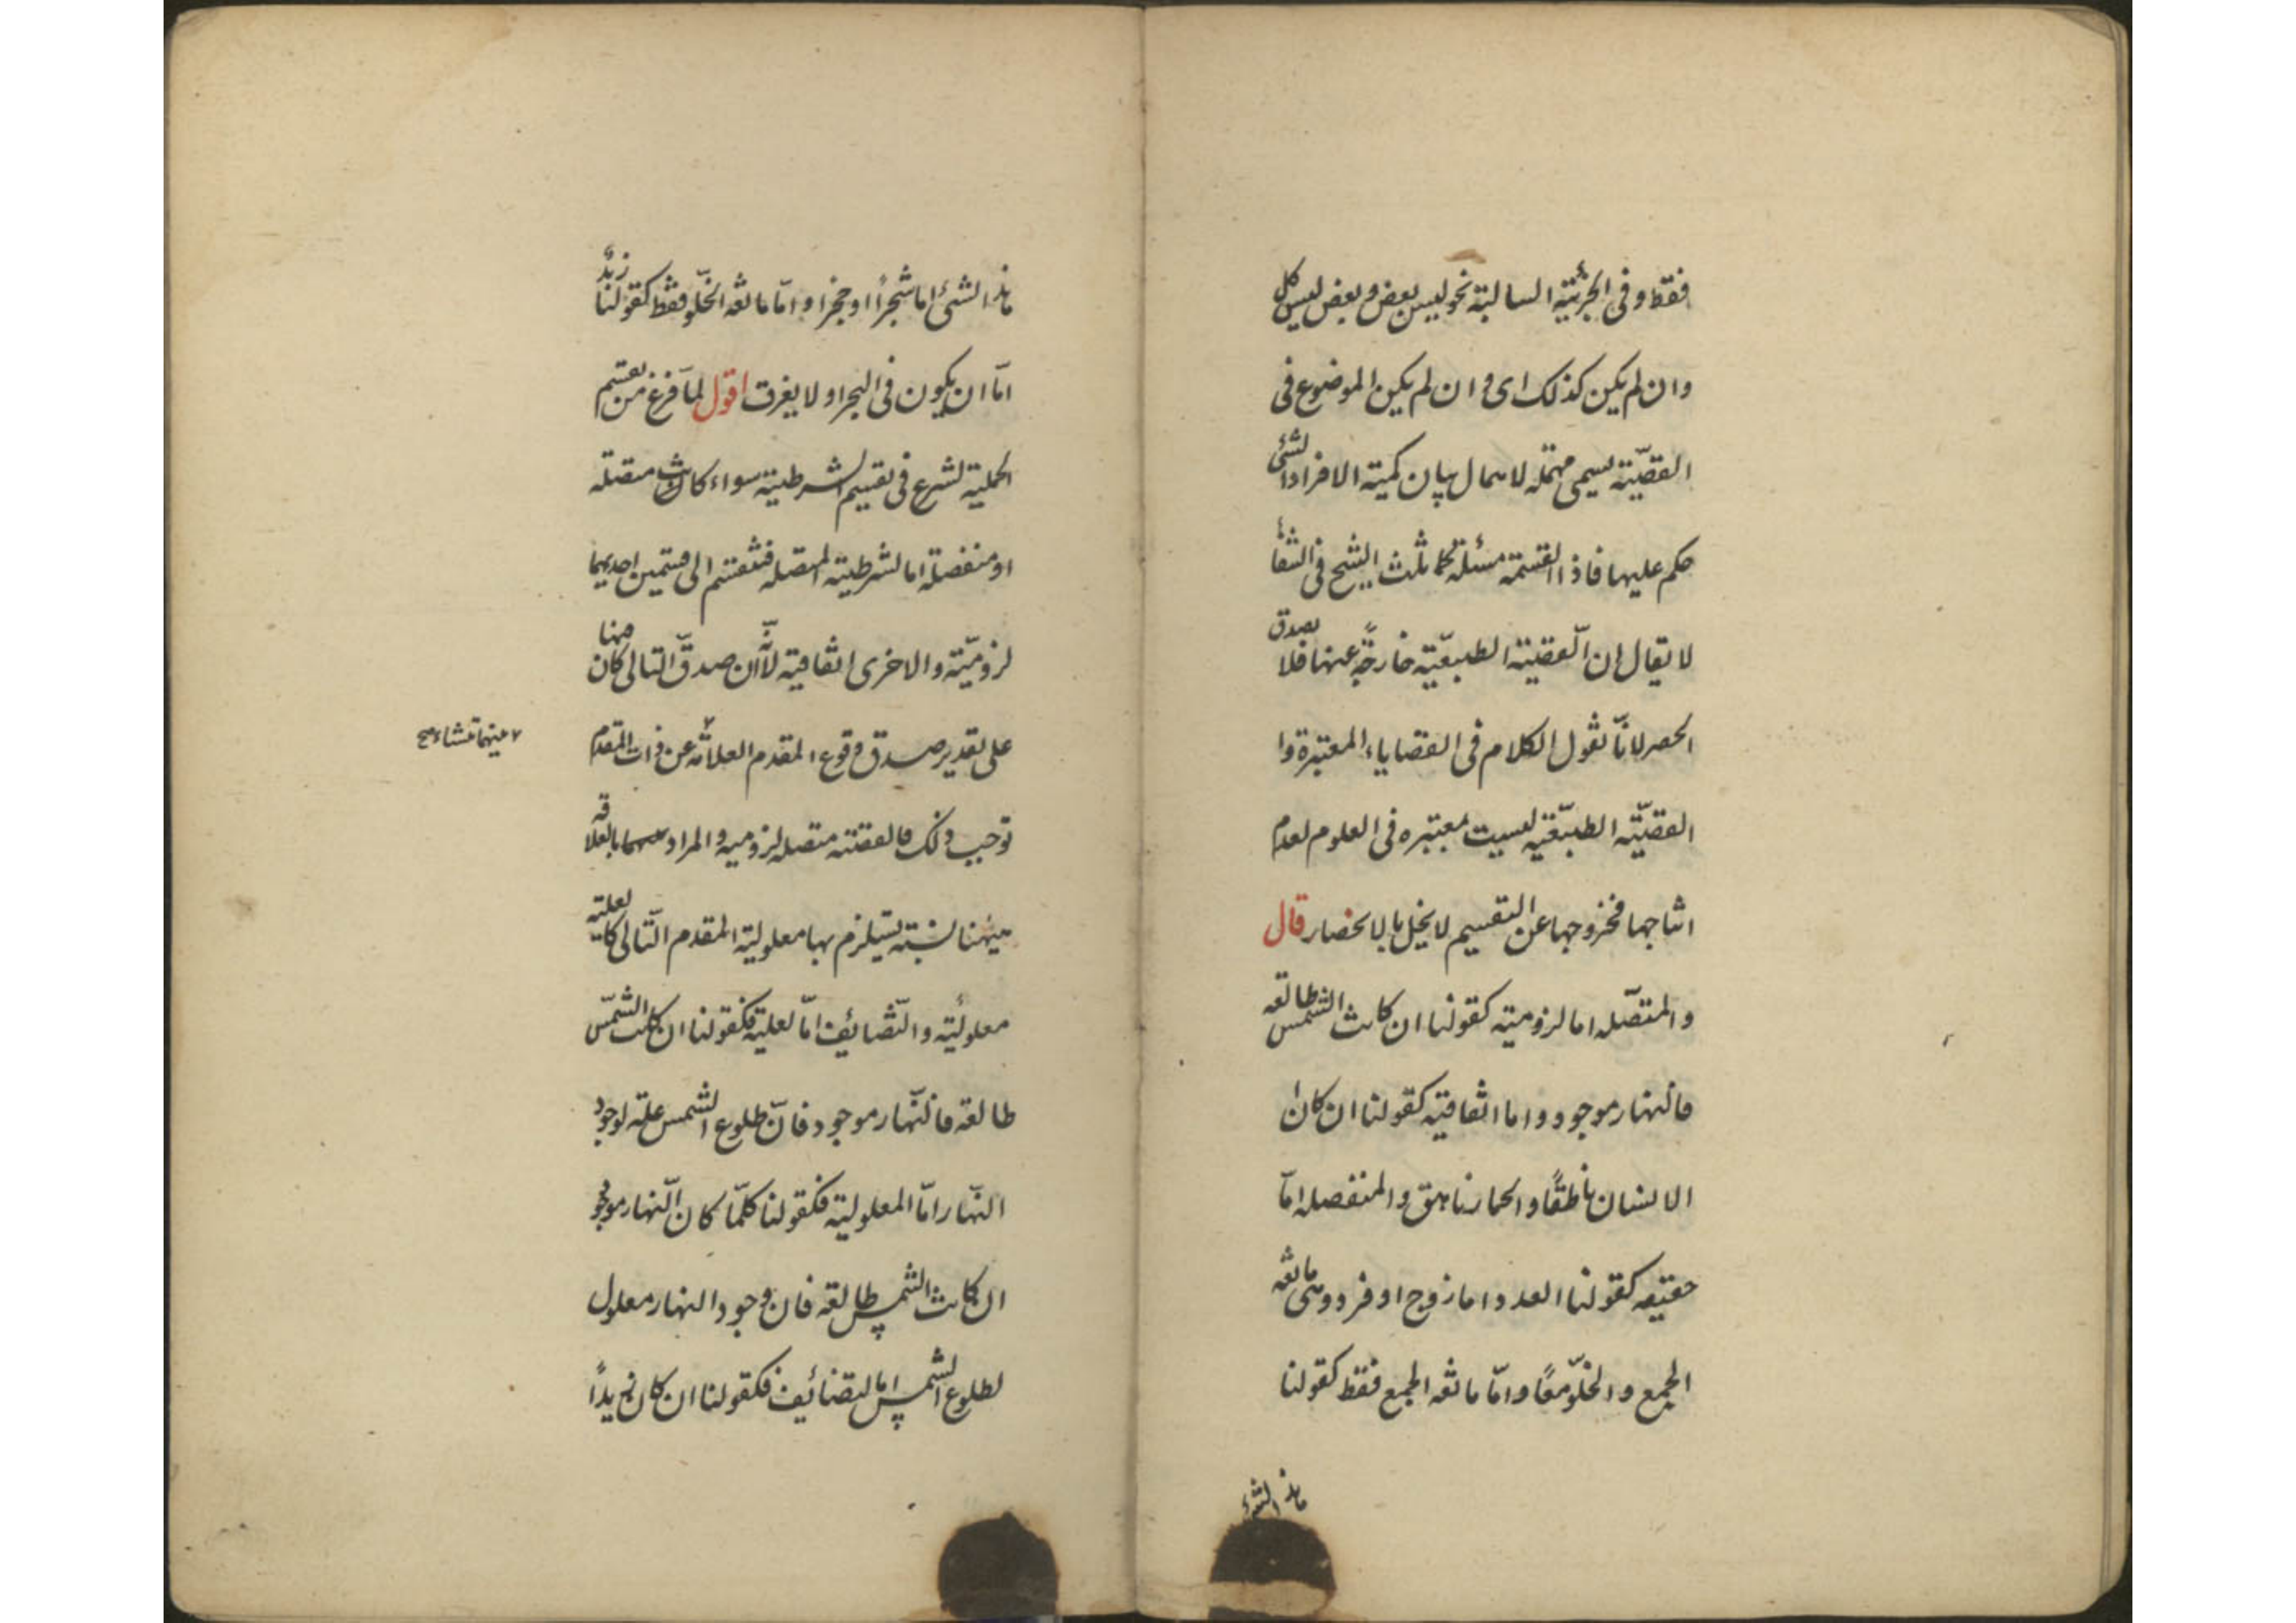 فقط وفى الجزئية السالبة نحو ليس بعض وبعض ليس كل
وان لم يكن كذلك اى وان لم يكن الموضوع فى
القضيّة يسمى مهملة لاهمال بيان كمية الافراد التى
حكم عليها فاذا القسمة مثلثة كما ثلث الشيخ فى الشفاء
لا يقال ان القضيّة الطبيعيّة خارجة عنها فلا يصدق
الحصر لانّا نقول الكلام فى القضاياء المعتبرة وا
القضيّة الطبيعيّة ليست بمعتبره فى العلوم لعدم
انتاجها فخروجها عن التقسيم لا يخل بالانحصار قال
والمتصّله اما لزومية كقولنا ان كانت الشمس طالعه
فالنهار موجود واما اتفاقية كقولنا ان كان
الانسان ناطقًا والحمار ناهق والمنفصله امّا
حقيقه كقولنا العدد اما زوج او فرد وهى مانعه
الجمع والخلوّ معًا وامّا مانعه الجمع فقط كقولنا
هذا الشئ
هذا الشئ اما شجرًا او حجرا وامّا مانعه الخلوّ فقط كقولنا زيدٌ
امّا ان يكون فى البحر او لا يغرق اقول لمّا فرغ من تقسيم
الحملية شرع فى تقسيم الشرطية سواء كانت متصله
او منفصلة اما الشرطية المتصله فتنقسم الى قسمين احديهما
لزوميّة والاخرى اتفاقية لانّه ان صدق التالى كان منها
على تقدير صدق وقوع المقدم لعلاقه عن ذات المقدم
توجب ذلك فالقضية متصله لزوميه والمراد بالعلاقه
ههنا نسبة يستلزم بها معلولية المقدم التّالى كالعلية
معلوليّة والتّضائف امّا لعلية فكقولنا ان كانت الشمّس
طالعة فالنّهار موجود فانّ طلوع الشمس علة لوجود
النّهار امّا المعلولية فكقولنا كلمّا كان النّهار موجود
ان كانت الشمس طالعة فان وجود النهار معلول
لطلوع الشمس اما التضائف فكقولنا ان كان زيدًا